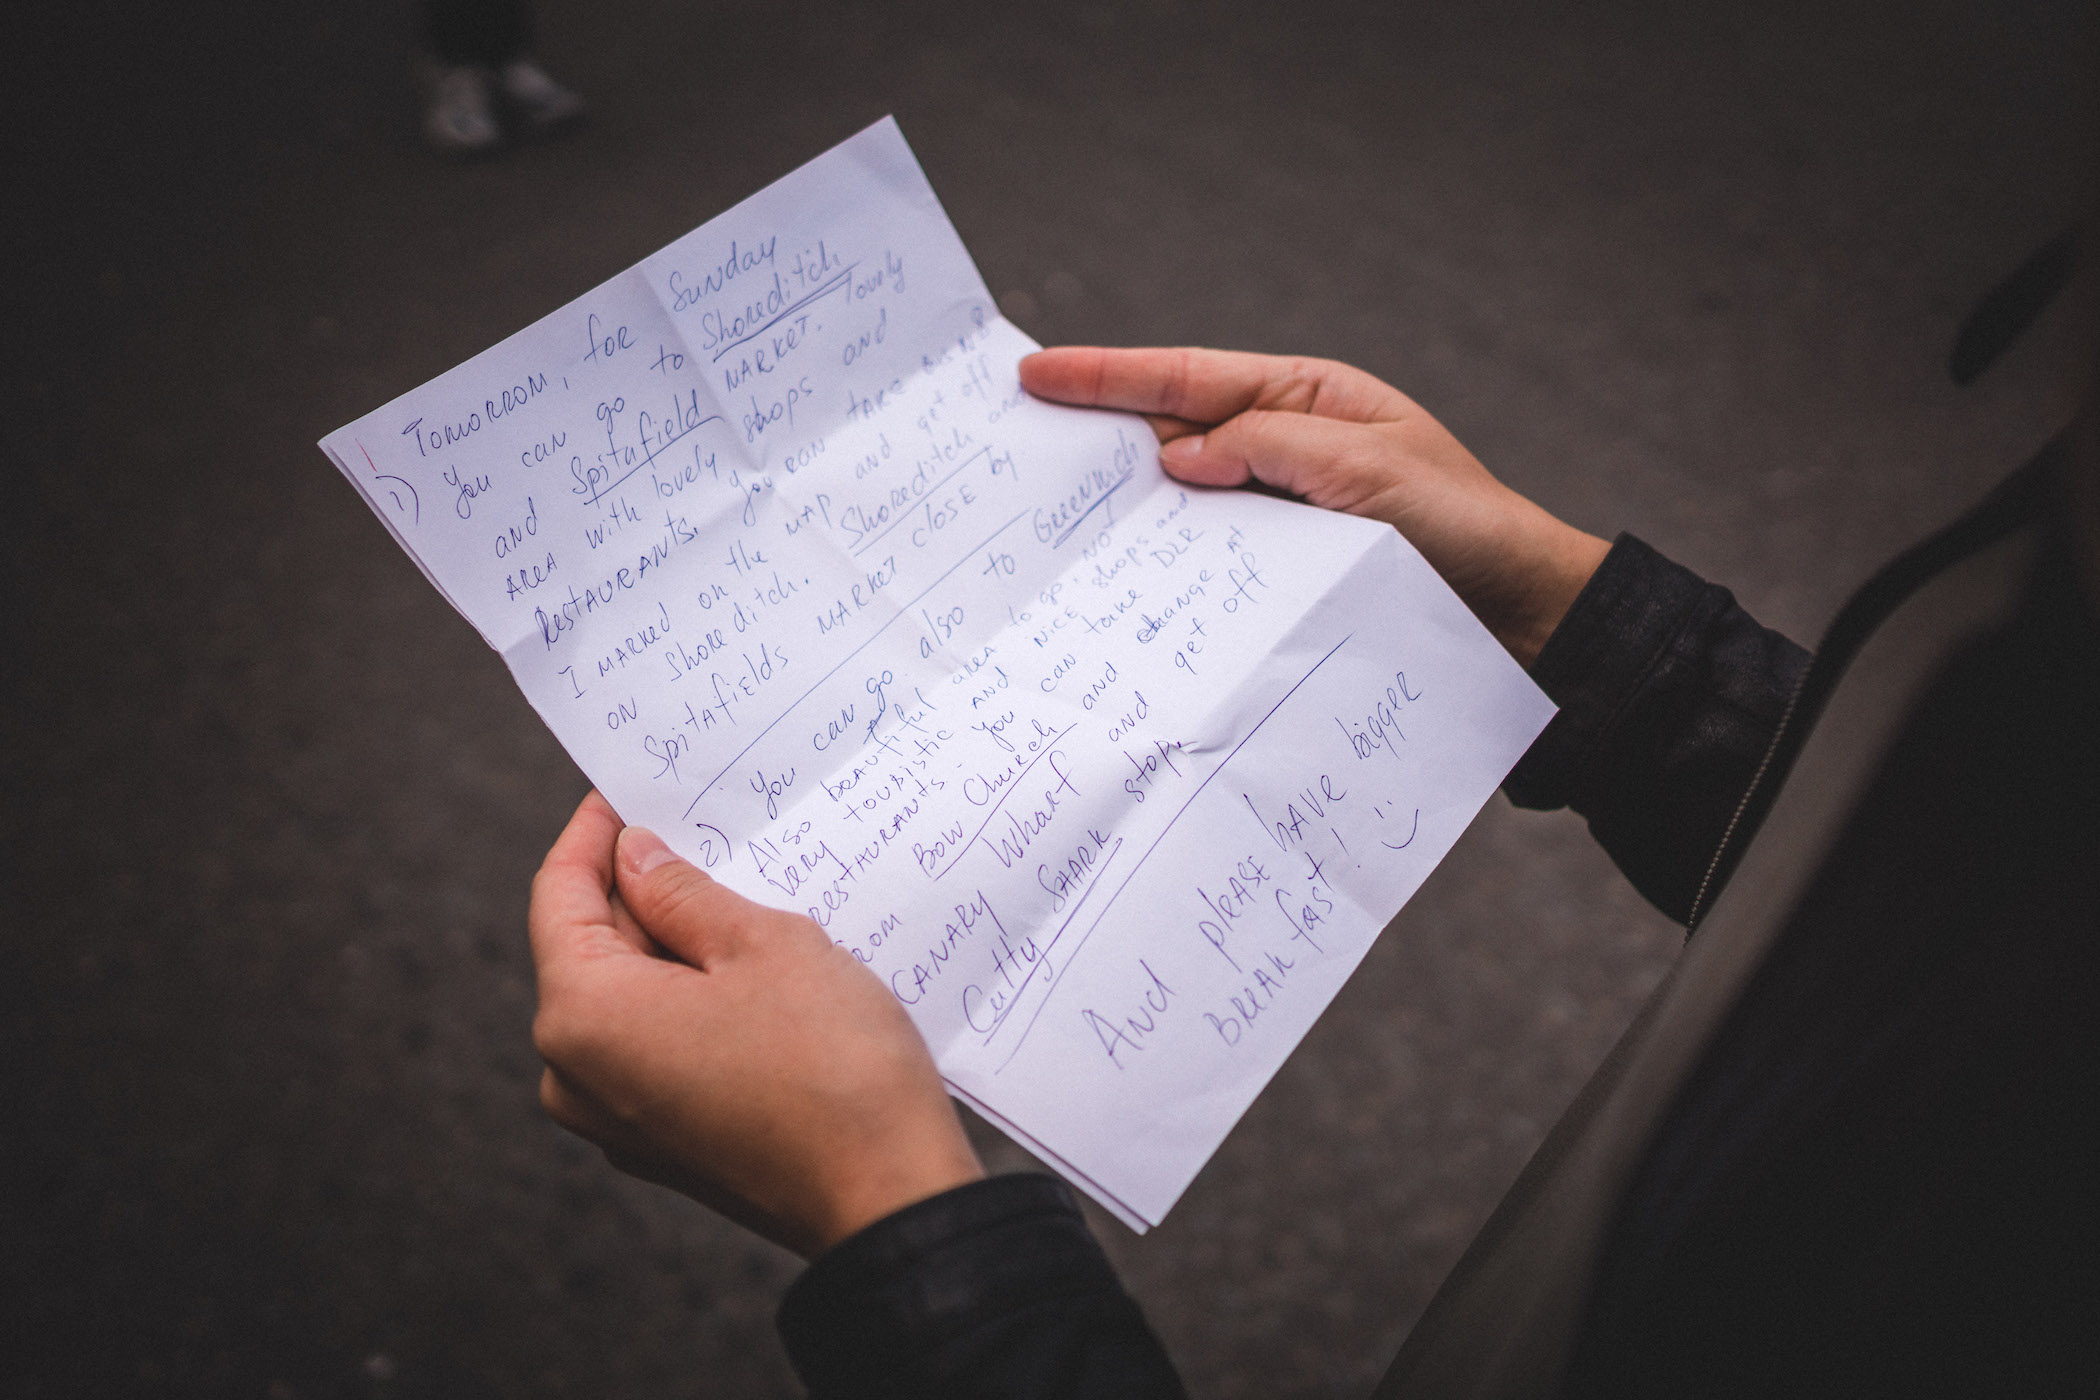 !
1) Tomorrow, for Sunday
You can go to Shoreditch
and Spitafield MARKET. lovely
AREA with lovely shops and
RestAURANTs. you can take Bus N8
I MARKED on the MAP and get off
on Shoreditch. Shoreditch and
SpitAfiElds MARKET close by.
2) You can go also to Greenwich
Also A beautiful area to go. NOT
very touristic AND NICE shops and
restAURANTs. You can take DLR
from Bow Church and change AT
CANARY Wharf and get off
Cutty SHARK stop.
And please hAVE bigger
BREAK fast!